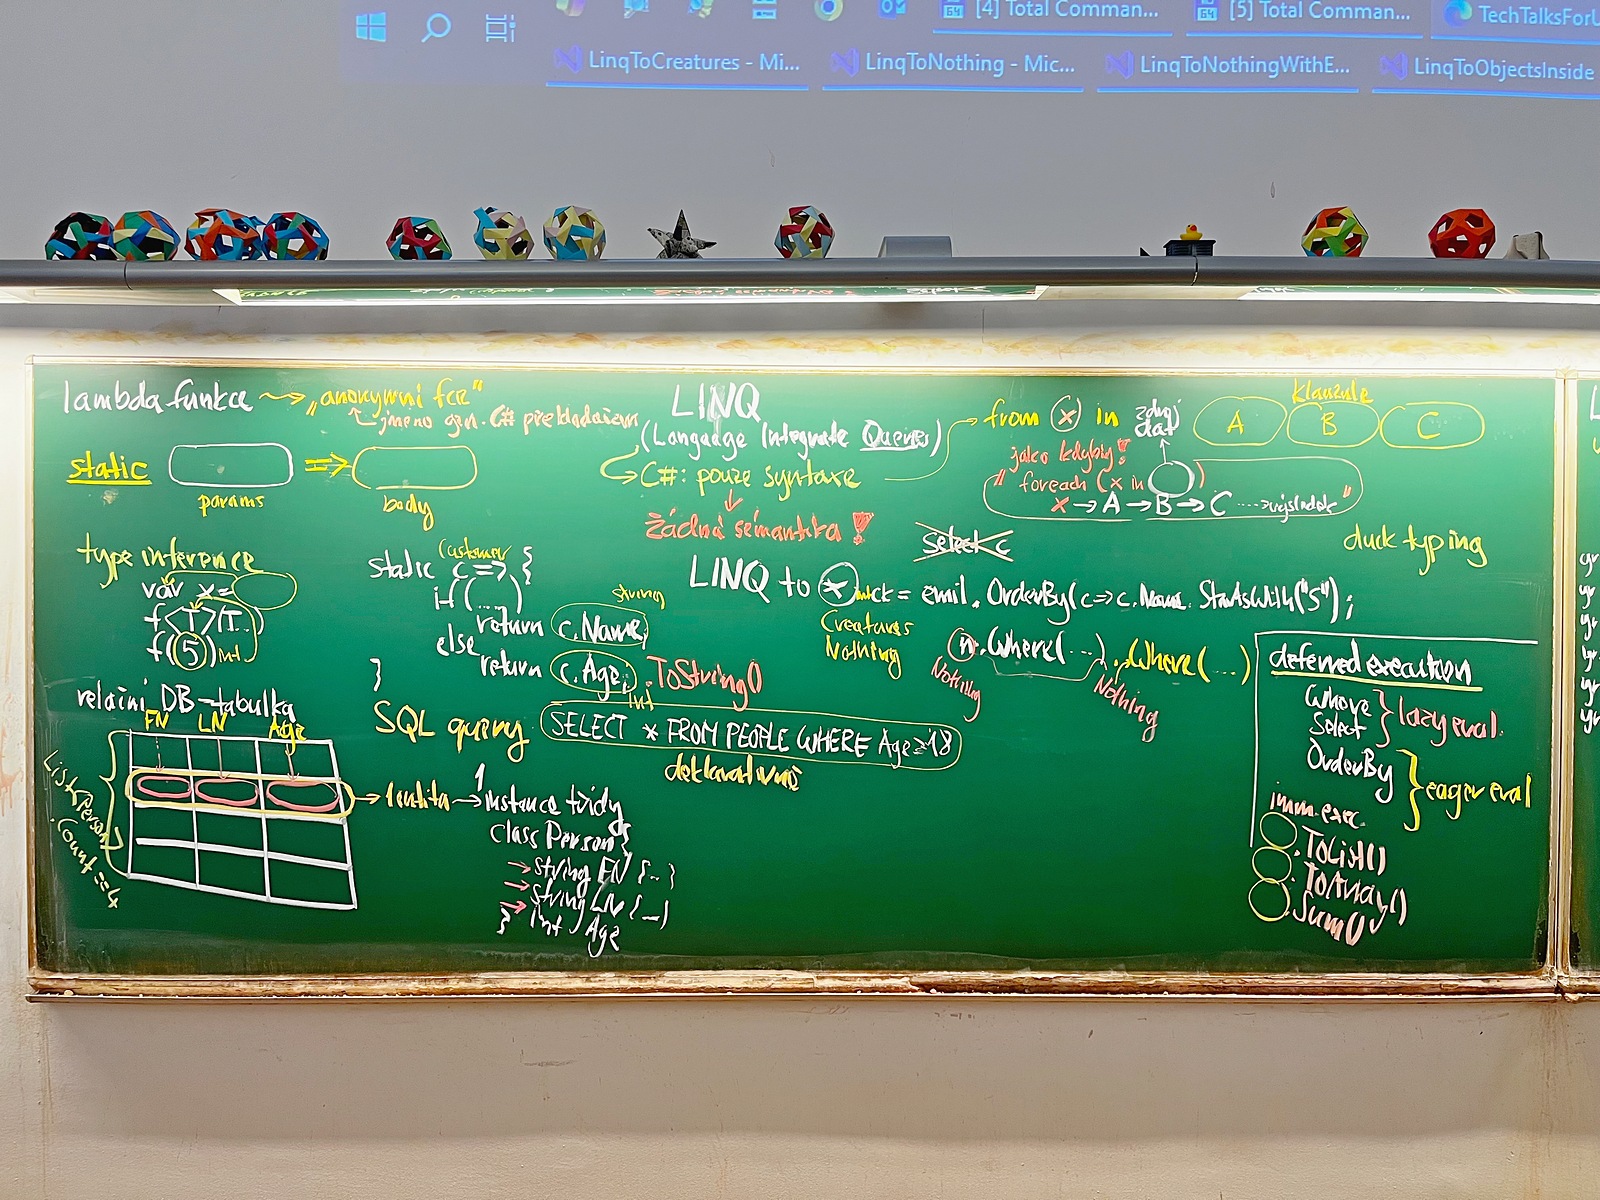 [4] Total Comman...
[5] Total Comman...
TechTalksForU
LinqToCreatures - Mi...
LinqToNothing - Mic...
LinqToNothingWithE...
LinqToObjectsInside
lambda funkce → „anonymní fce"
jméno gen. C# překladačem
static
=>
params
body
type inference
var x =
f<T>(T..)
f(5) int
static c => {
Customer
if (...)
return c.Name;
string
else
return c.Age; .ToString()
int
}
LINQ
(Language Integrate Queries)
C#: pouze syntaxe
žádná sémantika!
from x in zdroj dat
klauzule
A B C
jako kdyby!
" foreach (x in )
x → A → B → C ... výsledek "
select c
duck typing
LINQ to *
Creatures
Nothing
= emil.OrderBy(c=>c.Name.StartsWith("S");
n.Where(...).Where(...)
Nothing
Nothing
deferred execution
Where
Select
lazy eval.
OrderBy
eager eval
imm. exec.
.ToList()
.ToArray()
.Sum()
relační DB → tabulka
FN LN Age
List<Person>
.Count == 4
SQL query
SELECT * FROM PEOPLE WHERE Age ≥ 18
deklarativně
→ 1 entita → 1 instance třídy
class Person {
→ string FN {...}
→ string LN {...}
→ int Age
}